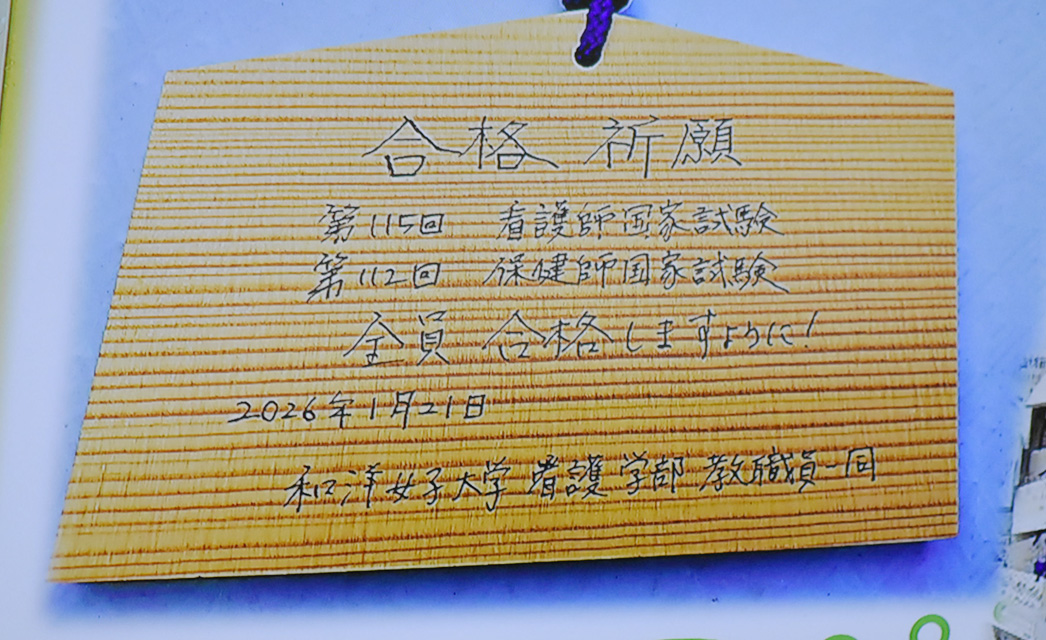 合格 祈願
第115回 看護師国家試験
第112回 保健師国家試験
全員 合格しますように!
2026年1月21日
和洋女子大学 看護学部 教職員一同